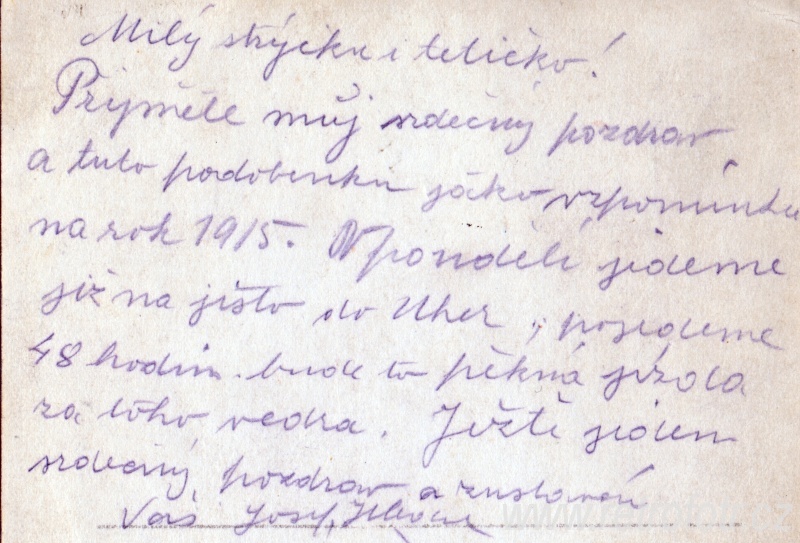 Milý strýčku i tetičko!
Přijměte můj srdečný pozdrav
a tuto podobenku jako vzpomínku
na rok 1915. V pondělí jedeme
již na jisto do Uher, pojedeme
48 hodin. bude to pěkná jízda
za toho vedra. Ještě jeden
srdečný pozdrav a
Váš Josef